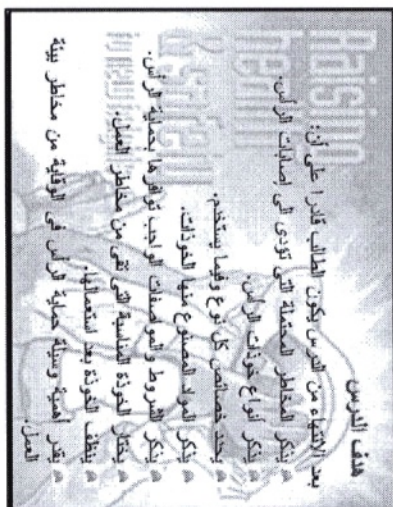 هدف الدرس
بعد الانتهاء من الدرس يكون الطالب قادرا على أن:
يذكر المخاطر المحتملة التى تؤدى الى إصابات الرأس.
يذكر أنواع خوذات الرأس.
يحدد خصائص كل نوع وفيما يستخدم.
يذكر المواد المصنوع منها الخوذات.
يذكر الشروط والمواصفات الواجب توافرها بحماية الرأس.
يختار الخوذة المناسبة التى تقى من مخاطر العمل.
ينظف الخوذة بعد استعمالها.
يقدر أهمية وسيلة حماية الرأس فى الوقاية من مخاطر بيئة
العمل.
Raising
health
& safety